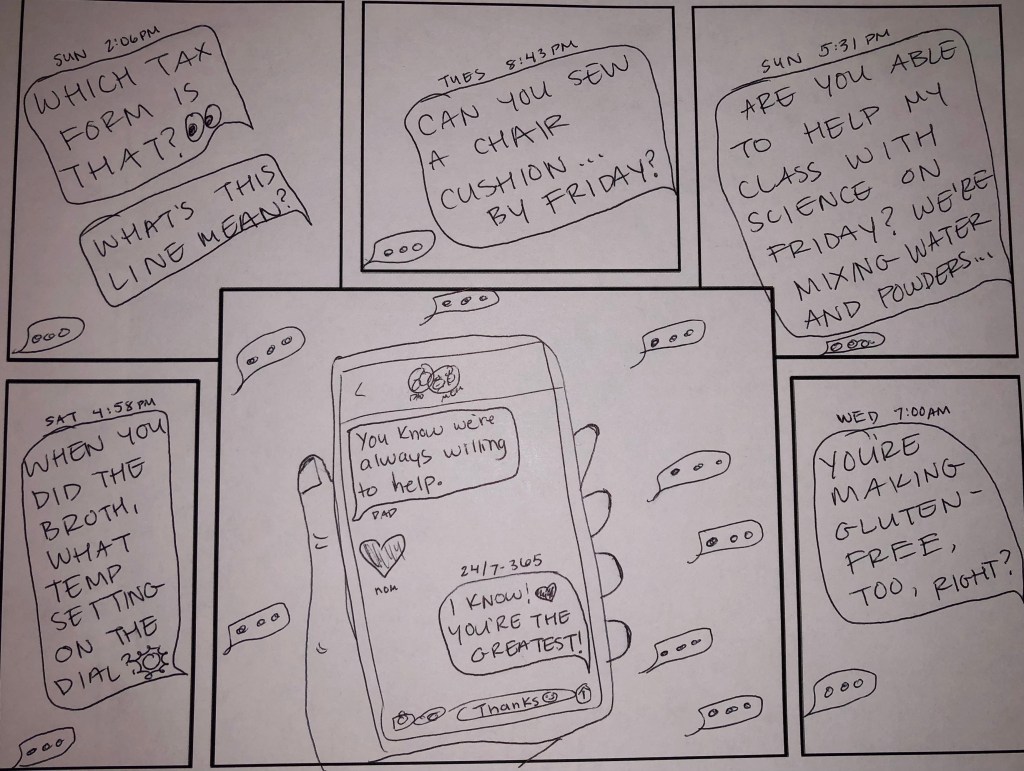 SUN 2:06PM
WHICH TAX
FORM IS
THAT?
WHAT'S THIS
LINE MEAN?
TUES 8:43 PM
CAN YOU SEW
A CHAIR
CUSHION...
BY FRIDAY?
SUN 5:31 PM
ARE YOU ABLE
TO HELP MY
CLASS WITH
SCIENCE ON
FRIDAY? WE'RE
MIXING WATER
AND POWDERS...
SAT 4:58PM
WHEN YOU
DID THE
BROTH,
WHAT
TEMP
SETTING
ON THE
DIAL?
DAD MOM
You know we're
always willing
to help.
DAD
MOM
24/7-365
I KNOW!
YOU'RE THE
GREATEST!
Thanks
WED 7:00AM
YOU'RE
MAKING
GLUTEN-
FREE,
TOO, RIGHT?